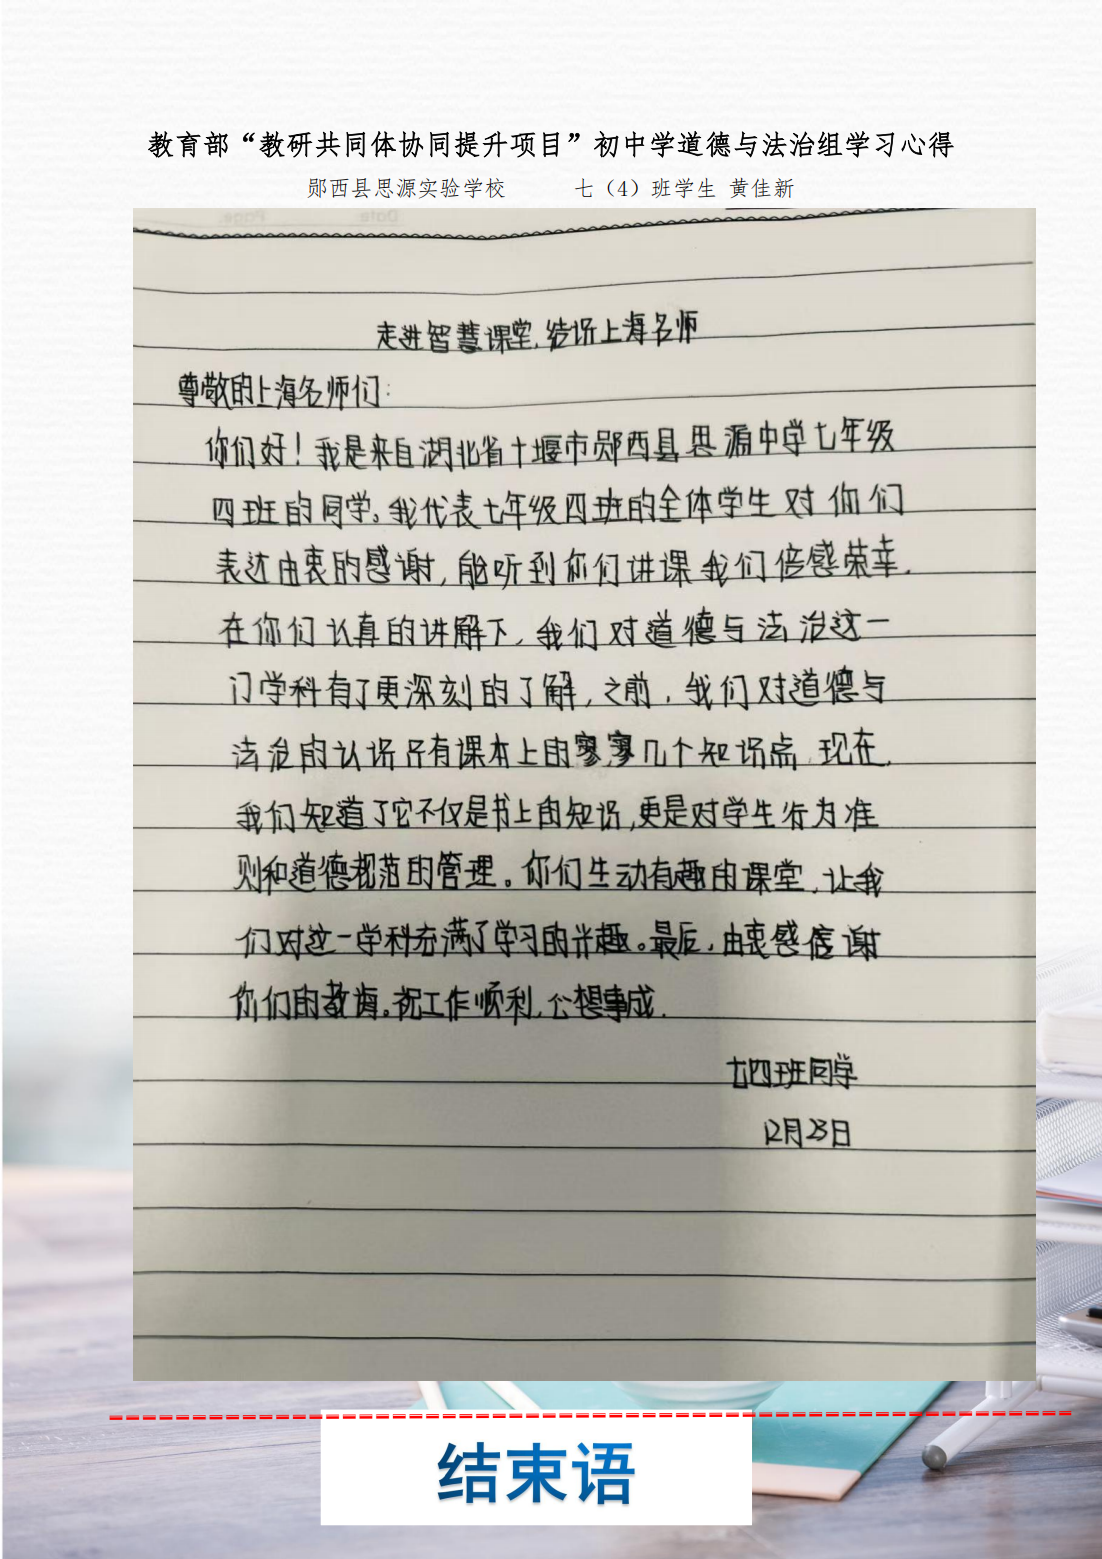 教育部“教研共同体协同提升项目”初中学道德与法治组学习心得
郧西县思源实验学校 七（4）班学生 黄佳新
Date: Page:
走进智慧课堂,结识上海名师
尊敬的上海名师们：
你们好！我是来自湖北省十堰市郧西县思源中学七年级
四班的同学。我代表七年级四班的全体学生对你们
表达由衷的感谢,能听到你们讲课我们倍感荣幸.
在你们认真的讲解下,我们对道德与法治这一
门学科有了更深刻的了解,之前,我们对道德与
法治的认识只有课本上的寥寥几个知识点,现在,
我们知道了它不仅是书上的知识,更是对学生行为准
则和道德规范的管理。你们生动有趣的课堂,让我
们对这一学科充满了学习的兴趣。最后,由衷感谢
你们的教诲。祝工作顺利,心想事成.
七四班同学
12月23日
结束语